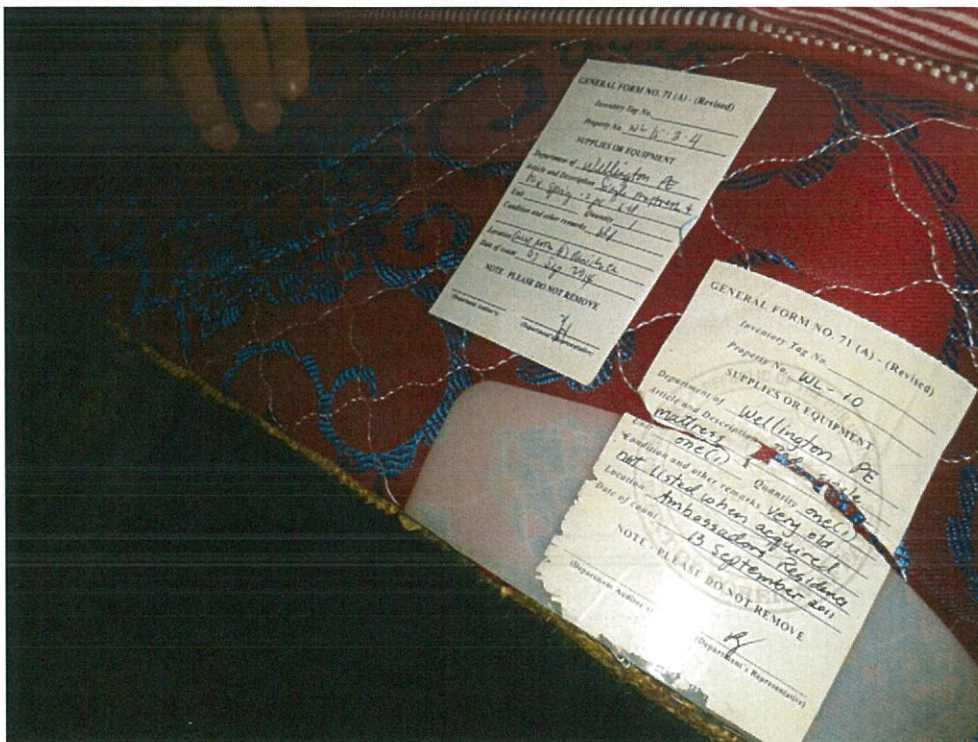 GENERAL FORM NO. 71 (A) - (Revised)
Inventory Tag No.
Property No. WL
SUPPLIES OR EQUIPMENT
Department of Wellington PE
Article and Description Single mattress &
Box Spring
Unit Quantity
Condition and other remarks old
Location Residence
Date of count 07 Sep 2014
NOTE - PLEASE DO NOT REMOVE
(Department Auditor's)
(Department's Representative)
GENERAL FORM NO. 71 (A) - (Revised)
Inventory Tag No.
Property No. WL-10
SUPPLIES OR EQUIPMENT
Department of Wellington PE
Article and Description
mattress
Unit one(1) Quantity one(1)
Condition and other remarks very old
not listed when acquired
Location Ambassador's Residence
Date of count 13 September 2011
NOTE - PLEASE DO NOT REMOVE
(Department Auditor
(Department's Representative)